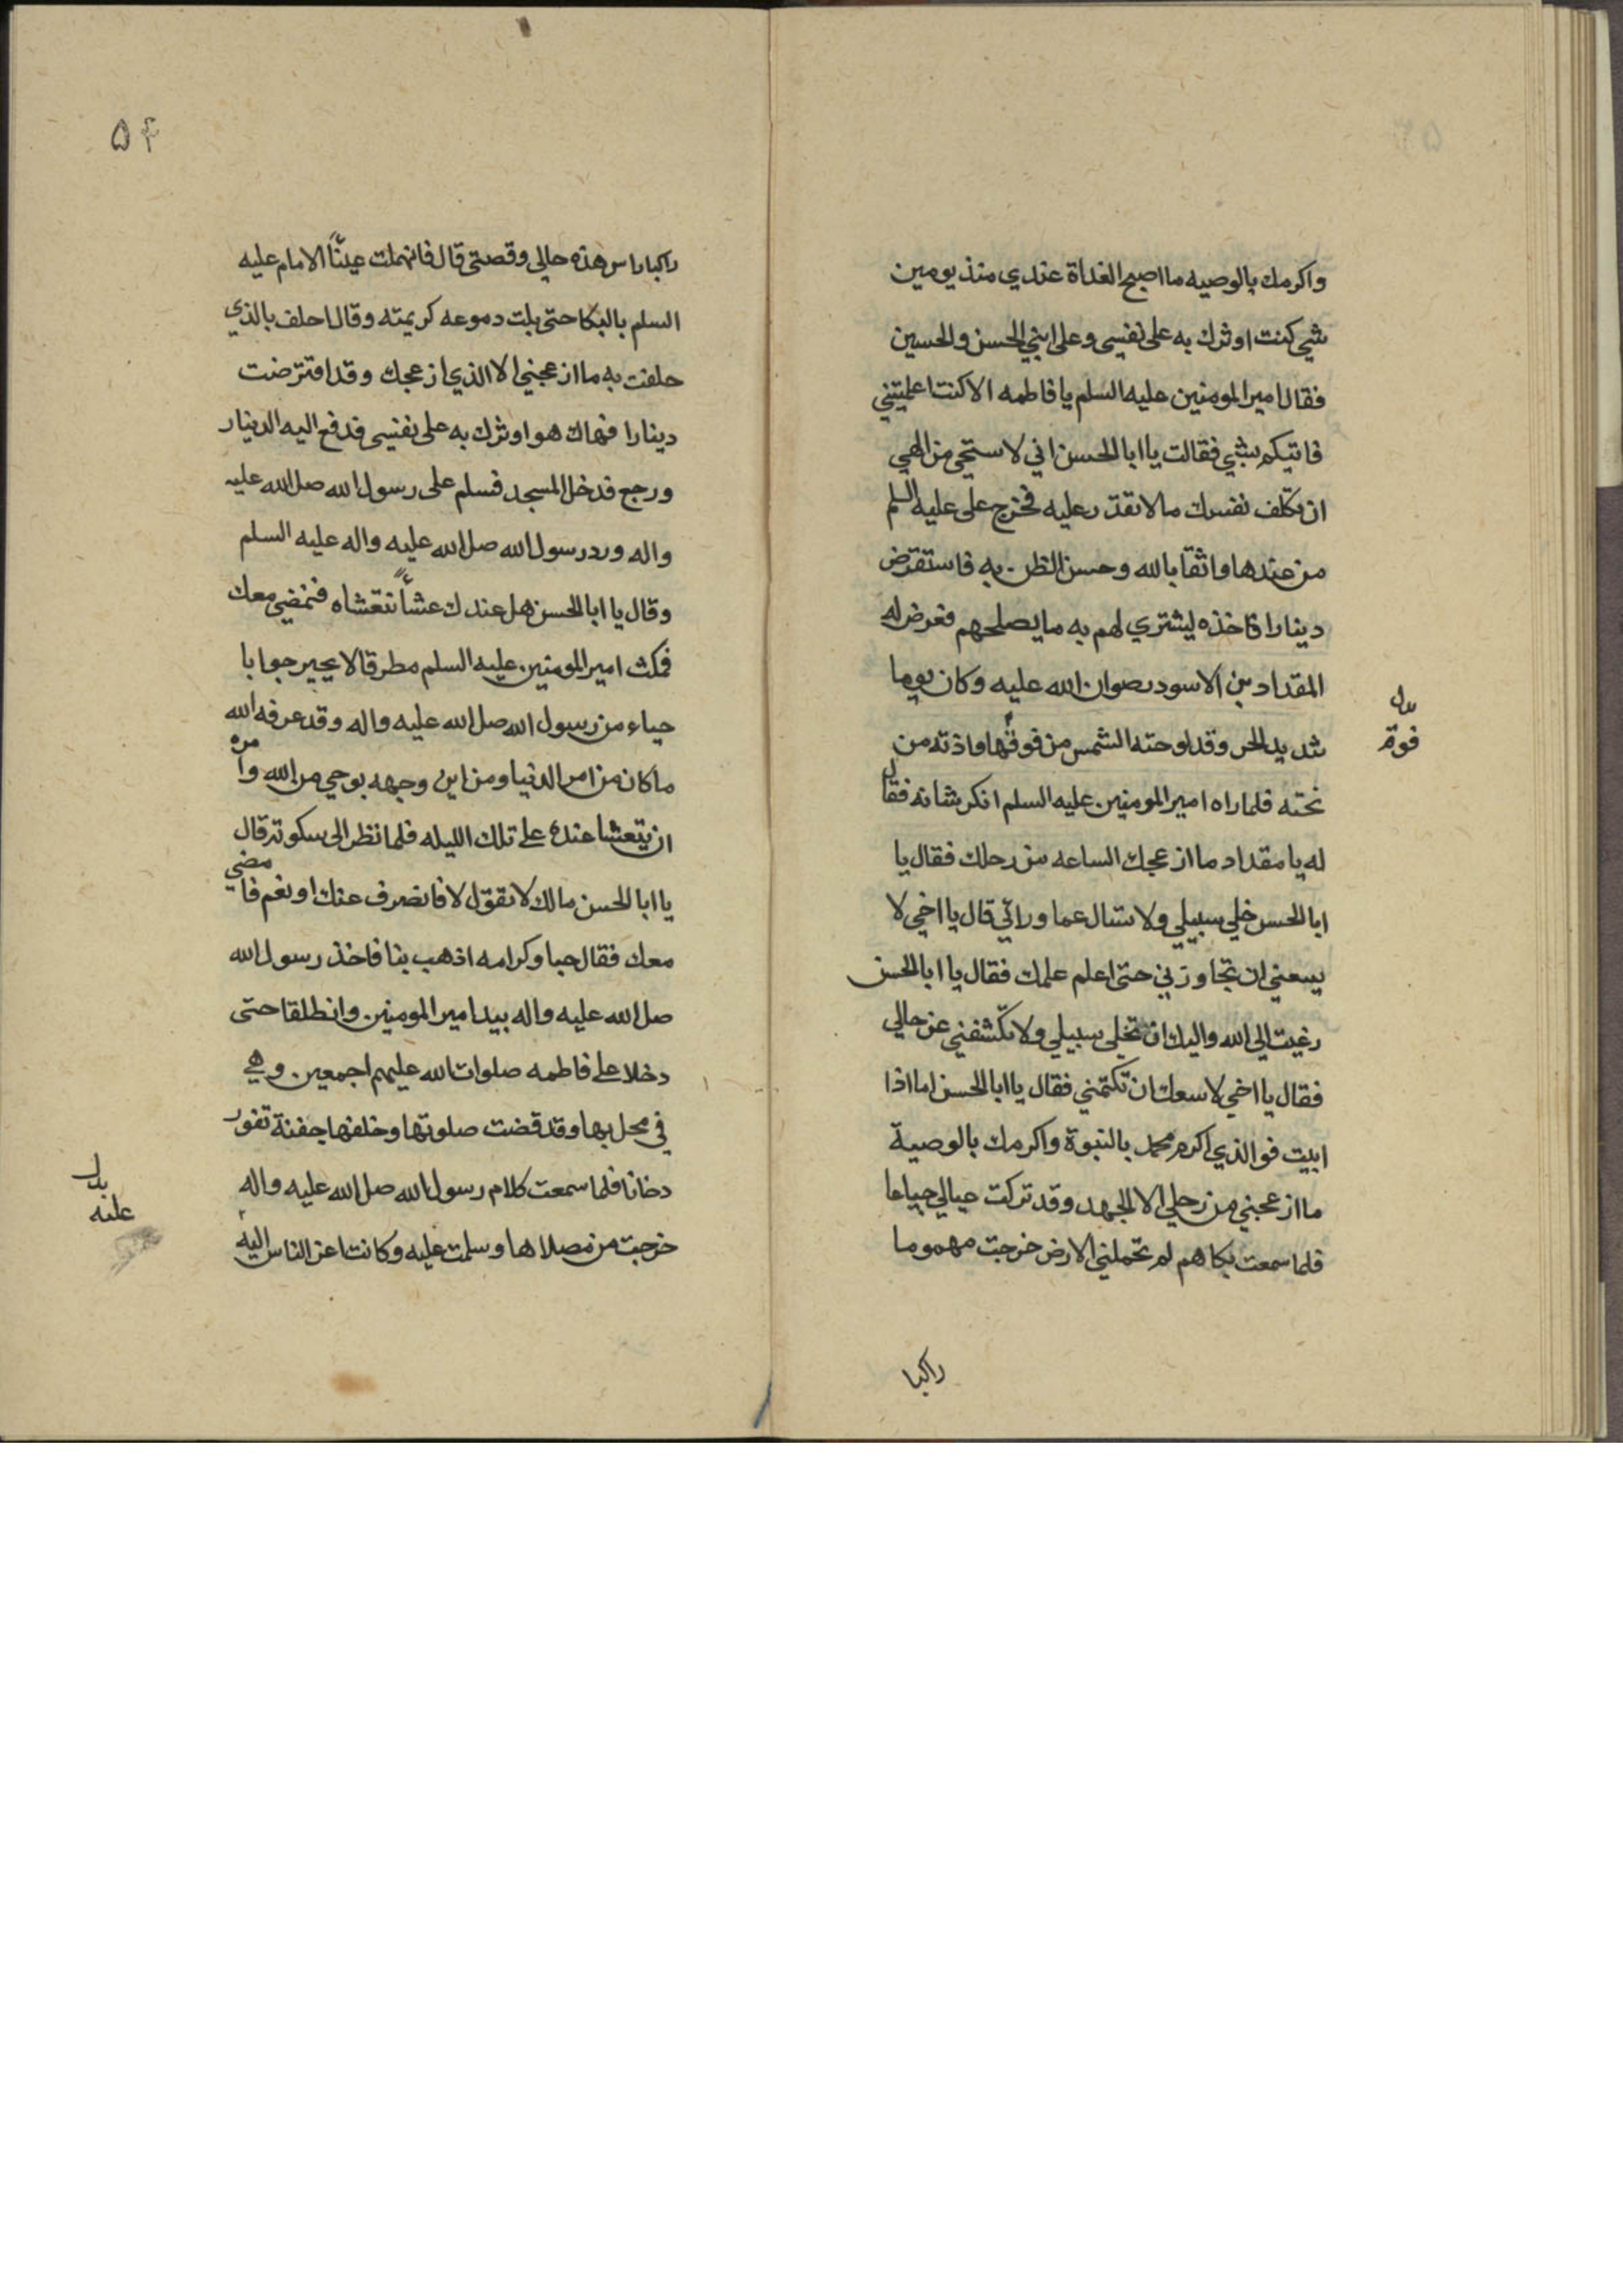 واكرمك بالوصيه ما اصبح الغداة عندي منذ يومين
شي كنت اوثرك به على نفسي وعلى ابني الحسن والحسين
فقال امير المومنين عليه السلم يا فاطمه الا كنت اعلمتني
فاتيكم بشي فقالت يا ابا الحسن اني لاستحي من الهي
ان تكلف نفسك ما لا تقدر عليه فخرج على عليه السلم
من عندها واثقا بالله وحسن الظن به فاستقرض
دينارا فاخذه ليشتري لهم به ما يصلحهم فعرض له
المقداد بن الاسود رضوان الله عليه وكان يوما
شديد الحر وقد لوحته الشمس من فوقها واذته من
تحته فلما راه امير المومنين عليه السلم انكر شانه فقال
له يا مقداد ما ازعجك الساعه من رحلك فقال يا
ابا الحسن خلي سبيلي ولا تسال عما ورائي قال يا اخي لا
يسعني ان تجاوزني حتى اعلم علمك فقال يا ابا الحسن
رغبت الى الله واليك ان تخلي سبيلي ولا تكشفني عن حالي
فقال يا اخي لا سعك ان تكتمني فقال يا ابا الحسن اما اذا
ابيت فو الذي اكرم محمد بالنبوة واكرمك بالوصية
ما ازعجني من رحلي الا الجهد وقد تركت عيالي جياعا
فلما سمعت بكاهم لم تحملني الارض خرجت مهموما
بدل
فوقه
راكبا
۵۴
راكبا راس هذه حالي وقصتي قال فانهملت عيناً الامام عليه
السلم بالبكا حتى بلت دموعه كريمته وقال احلف بالذي
حلفت به ما ازعجني الا الذي ازعجك وقد اقترضت
دينارا فهاك هو اوثرك به على نفسي فدفع اليه الدينار
ورجع فدخل المسجد فسلم على رسول الله صل الله عليه
واله ورد رسول الله صل الله عليه واله عليه السلم
وقال يا ابا الحسن هل عندك عشأً نتعشاه فنمضي معك
فمكث امير المومنين عليه السلم مطرقا لا يحير جوابا
حياء من رسول الله صل الله عليه واله وقد عرفه الله
ما كان من امر الدنيا ومن اين وجهه بوحي من الله وامره
ان يتعشا عنده على تلك الليله فلما نظر الى سكوته قال
يا ابا الحسن مالك لا تقول لا فانصرف عنك او نعم فامضي
معك فقال حبا وكرامه اذهب بنا فاخذ رسول الله
صل الله عليه واله بيد امير المومنين وانطلقا حتى
دخلا على فاطمه صلوات الله عليهم اجمعين وهي
في محل بها وقد قضت صلوتها وخلفها جفنة تفور
دخانا فلما سمعت كلام رسول الله صل الله عليه واله
خرجت من مصلاها وسلمت عليه وكانت اعز الناس اليه
بدل
عليه